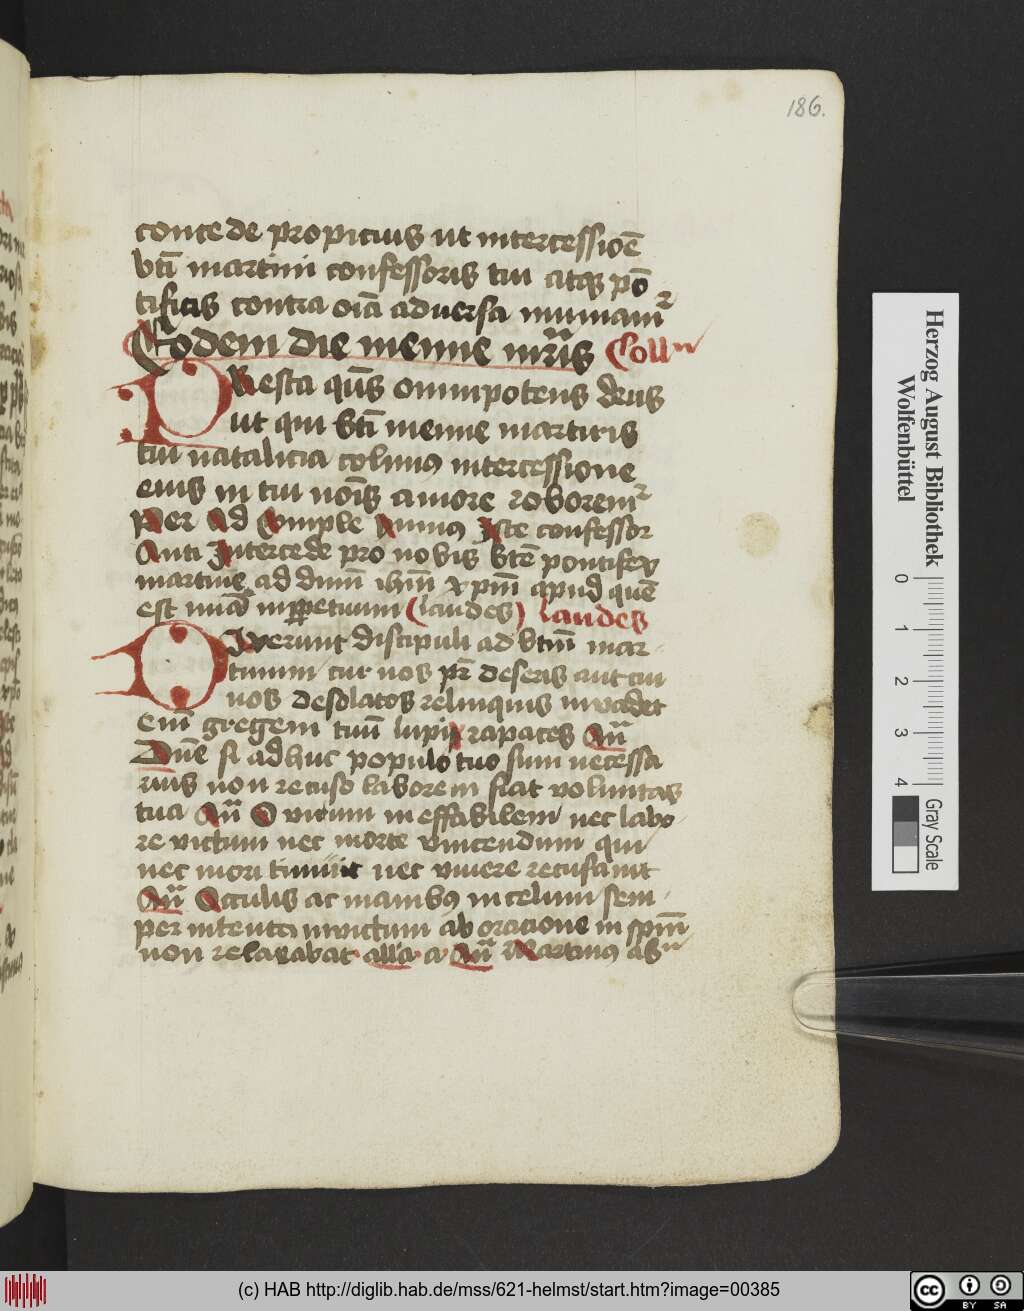 186.
conce de propicius ut intercessiōe
bt̄i martini confessoris tui atqꝫ pō
tificis contra oīa adversa muniamʳ
Eodem die menne mr̄is Collᵃ
PResta qūs omnipotens deus
ut qui bt̄i menne martiris
tui natalicia colimꝰ intercessione
eius in tui noīs amore roboremʳ
Per Ad Comple Animꝰ Iste confessor
Anti Intercede pro nobis bt̄e pontifex
martine ad dnm̄ ihm̄ xpm̄ apud quē
est in ꝑpetuum (laudes) Laudes
DIxerunt discipuli ad bt̄m mar-
tinum cur nos pr̄ deseris aut cui
nos desolatos relinquis invadet
eni᷒ gregem tuū lupi rapaces An̄
Dn̄e si adhuc populo tuo sum necessa
rius non recuso laborem fiat voluntas
tua An̄ O virum ineffabilem nec labo-
re victum nec morte vincendum qui
nec mori timuit nec vivere recusavit
An̄ Occulis ac manibꝰ in celum sem-
per intentꝰ invictum ab oracione spm̄
non relaxabat all'a a An̄ Martinꝰ abᵉ
Herzog August Bibliothek
Wolfenbüttel
0 1 2 3 4
Gray Scale
(c) HAB http://diglib.hab.de/mss/621-helmst/start.htm?image=00385
cc BY SA